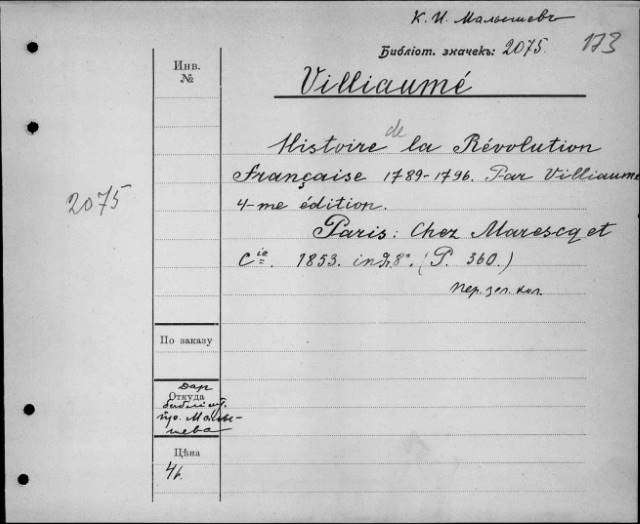 К. И. Малышевъ
Библіот. значекъ: 2075. 173
Инв.
№
Villiaumé
Histoire de la Révolution
Française 1789-1796. Par Villiaumé
4-me édition.
2075
Paris: Chez Marescq et
Cie. 1853. in Gr. 8°. (P. 360.)
пер. зел. кол.
По заказу
Откуда
Даръ
библіот.
пр. Малы-
шева
Цѣна